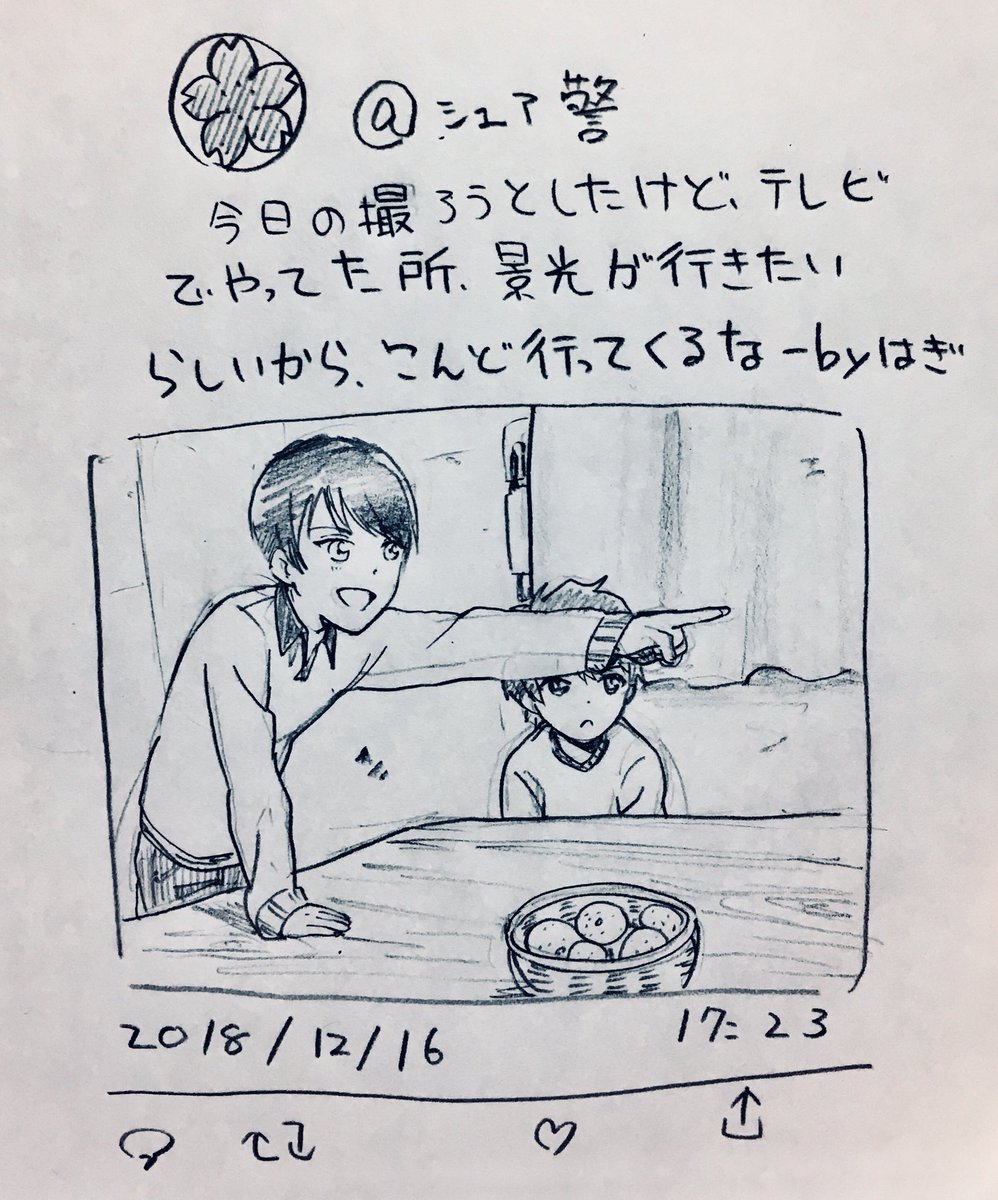 @シェア警
今日の撮ろうとしたけど、テレビ
でやってた所、景光が行きたい
らしいから、こんど行ってくるなーbyはぎ
2018/12/16
17:23